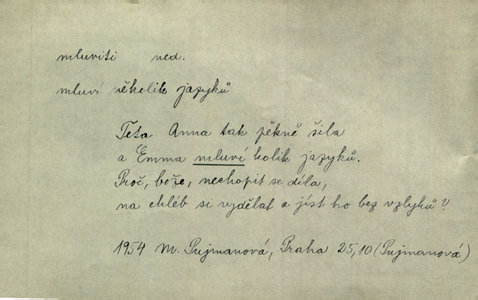 mluviti ned.
mluví několik jazyků
Teta Anna tak pěkně šila
a Emma mluví kolik jazyků.
Proč, bože, nechopit se díla,
na chléb si vydělat a jíst ho bez vzlyků?
1954 M. Pujmanová, Praha 25,10 (Pujmanová)